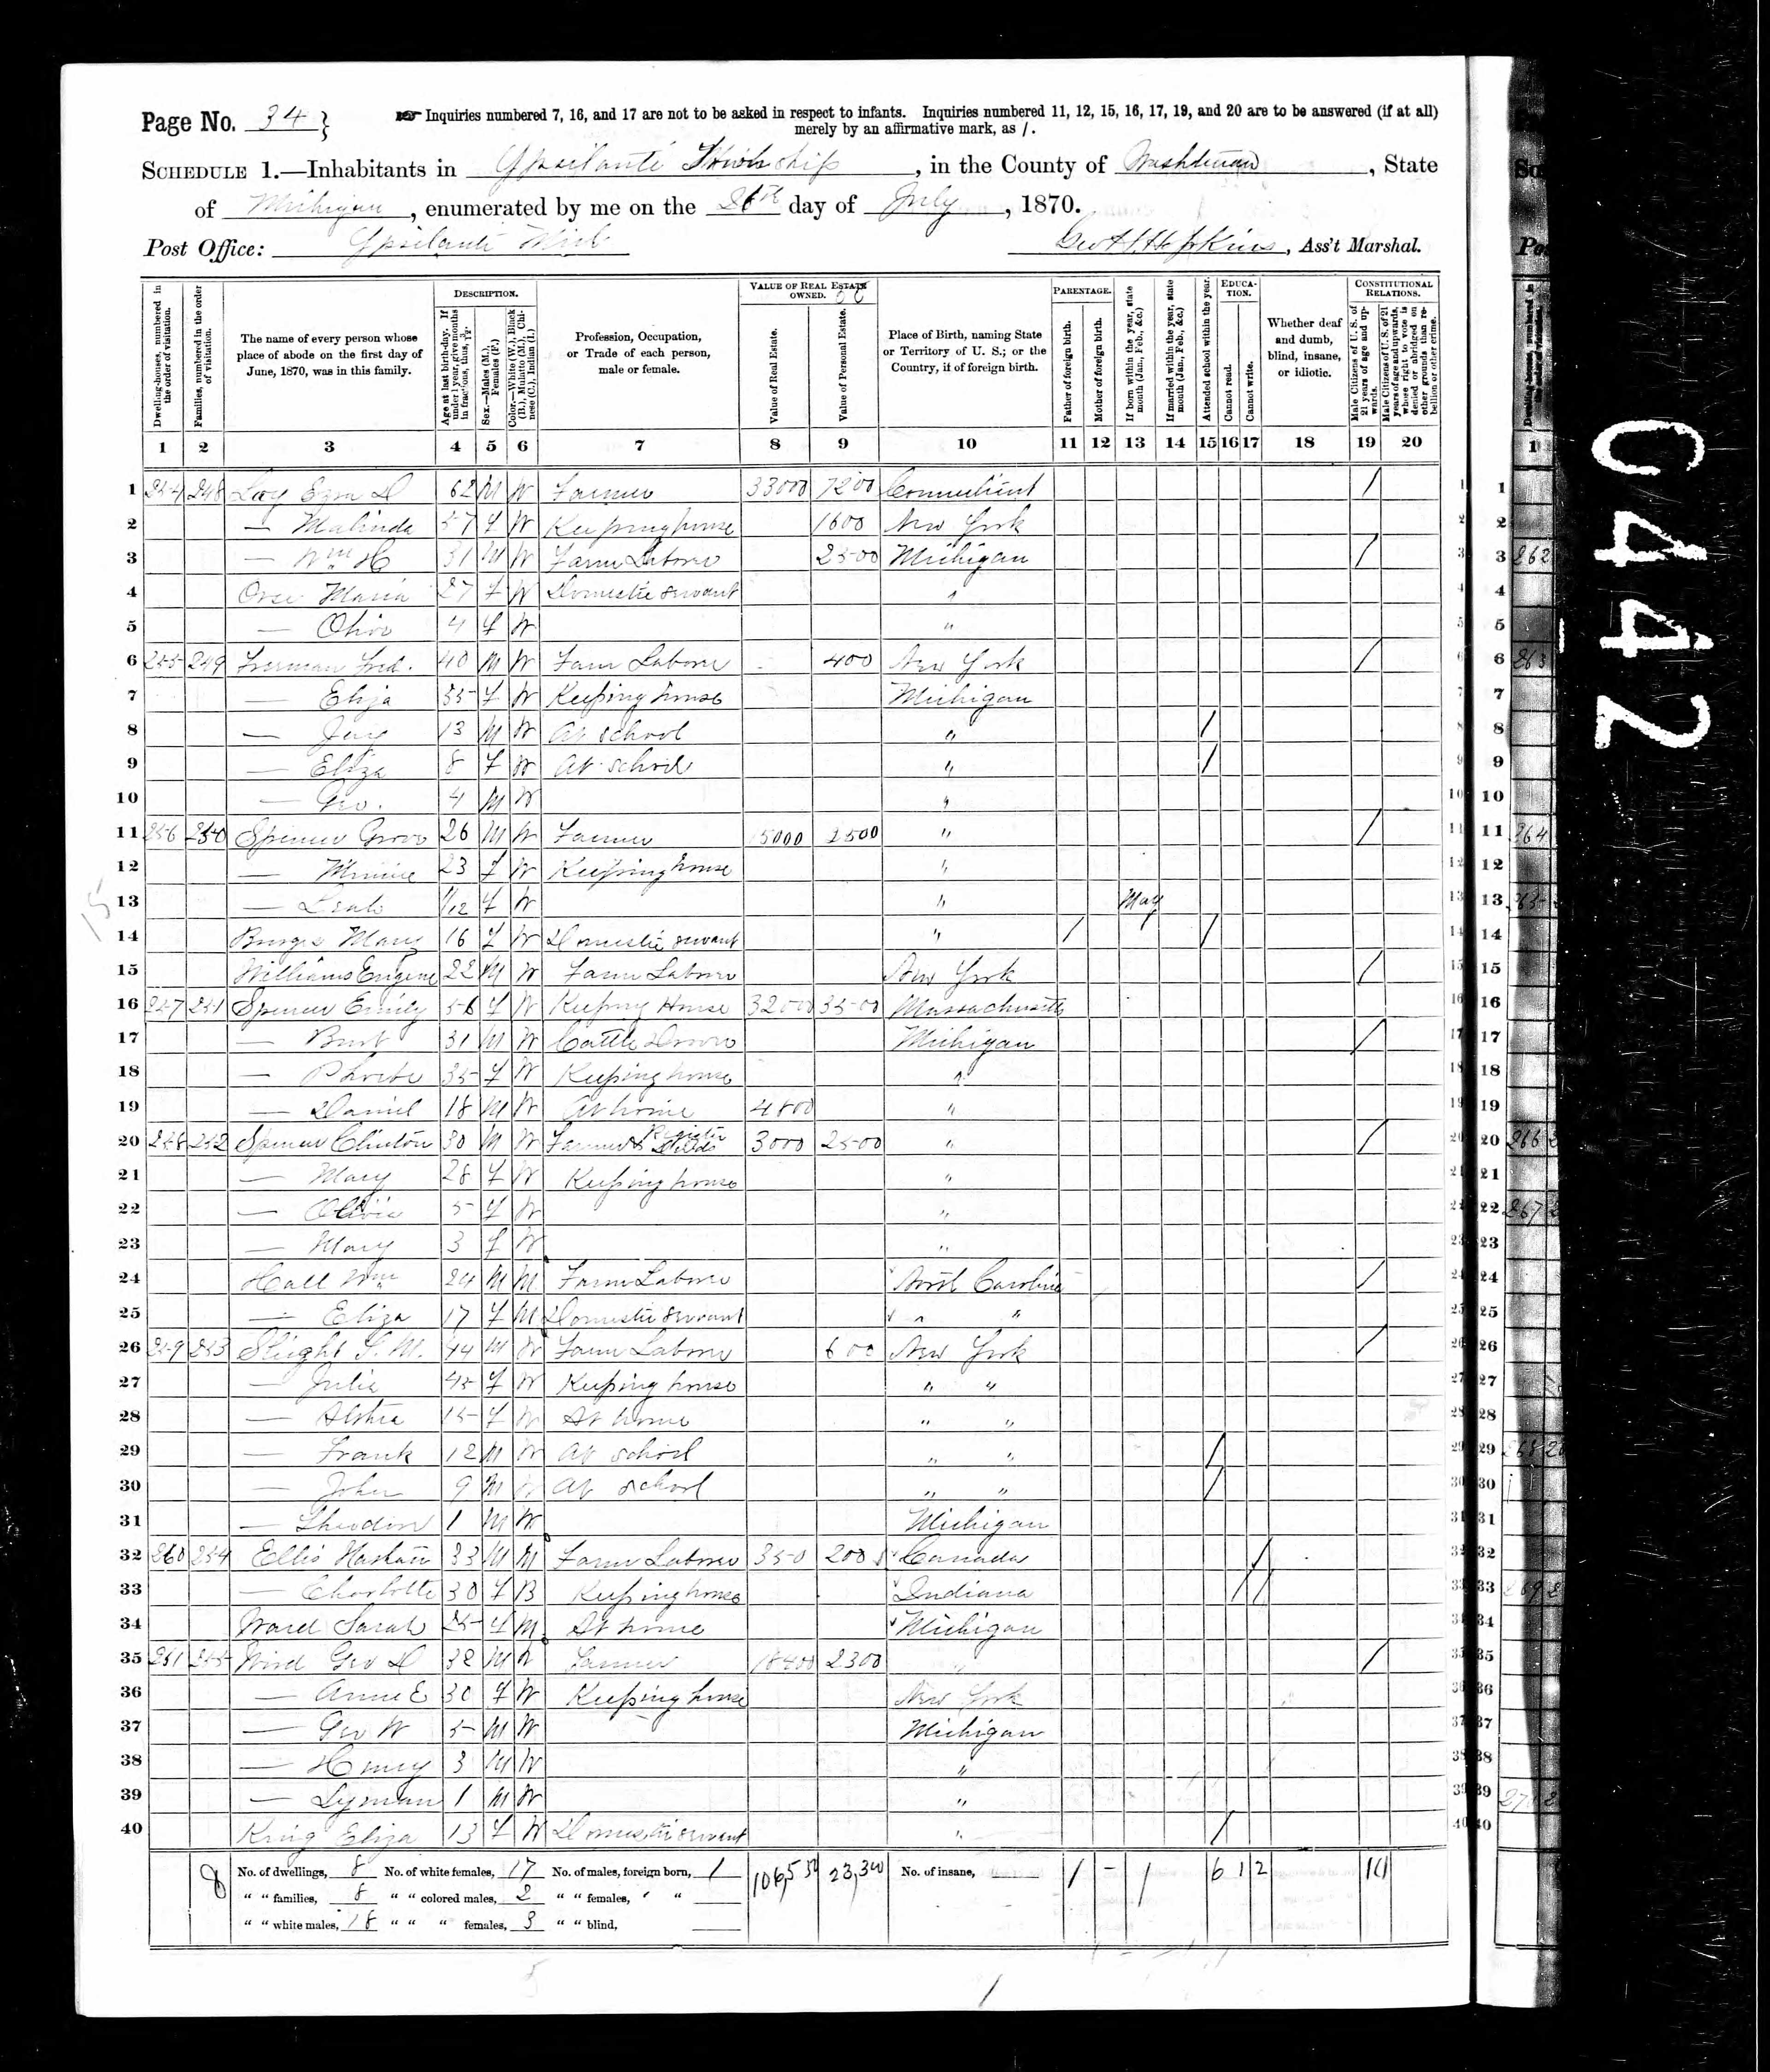 Page No. 34 }
Inquiries numbered 7, 16, and 17 are not to be asked in respect to infants. Inquiries numbered 11, 12, 15, 16, 17, 19, and 20 are to be answered (if at all)
merely by an affirmative mark, as /.
SCHEDULE 1.—Inhabitants in Ypsilanti Township, in the County of Washtenaw, State
of Michigan, enumerated by me on the day of July, 1870.
Post Office: Ypsilanti Mich Hopkins, Ass't Marshal.
Dwelling-houses, numbered in the order of visitation.
Families, numbered in the order of visitation.
The name of every person whose place of abode on the first day of June, 1870, was in this family.
DESCRIPTION.
Age at last birth-day. If under 1 year, give months in fractions, thus, 3/12.
Sex.—Males (M.), Females (F.)
Color.—White (W.), Black (B.), Mulatto (M.), Chinese (C.), Indian (I.)
Profession, Occupation, or Trade of each person, male or female.
VALUE OF REAL ESTATE OWNED.
Value of Real Estate.
Value of Personal Estate.
Place of Birth, naming State or Territory of U. S.; or the Country, if of foreign birth.
PARENTAGE.
Father of foreign birth.
Mother of foreign birth.
If born within the year, state month (Jan., Feb., &c.)
If married within the year, state month (Jan., Feb., &c.)
Attended school within the year.
EDUCATION.
Cannot read.
Cannot write.
Whether deaf and dumb, blind, insane, or idiotic.
CONSTITUTIONAL RELATIONS.
Male Citizens of U. S. of 21 years of age and upwards.
Male Citizens of U. S. of 21 years of age and upwards, whose right to vote is denied or abridged on other grounds than rebellion or other crime.
1 2 3 4 5 6 7 8 9 10 11 12 13 14 15 16 17 18 19 20
1 254 248 Ezra D 62 M W Farmer 33000 7200 Connecticut /
2 — Malinda 57 F W Keeping house 1600 New York
3 — Wm H 31 M W Farm Laborer 2500 Michigan /
4 Maria 27 F W Domestic servant "
5 — 4 F W "
6 255 249 Freeman Fred. 40 M W Farm Laborer 400 New York /
7 — Eliza 35 F W Keeping house Michigan
8 — Jay 13 M W At school " /
9 — Eliza 8 F W At school " /
10 — Geo. 4 M W "
11 256 250 Spencer Grove 26 M W Farmer 15000 2500 " /
12 — Minnie 23 F W Keeping house "
13 — Leah 1/12 F W " May
14 Mary 16 F W Domestic servant " / /
15 Williams Eugene 22 M W Farm Laborer New York /
16 257 251 Spencer Emily 56 F W Keeping House 32000 3500 Massachusetts
17 — Burt 31 M W Cattle Drover Michigan /
18 — Phoebe 35 F W Keeping house "
19 — Daniel 18 M W At home 4800 "
20 258 252 Spencer Clinton 30 M W Farmer & Register Deeds 3000 2500 " /
21 — Mary 28 F W Keeping house "
22 — Olivia 5 F W "
23 — Mary 3 F W "
24 Hall Wm 24 M M Farm Laborer North Carolina /
25 — Eliza 17 F M Domestic servant " "
26 259 253 Slight S. M. 44 M W Farm Laborer 600 New York /
27 — Julia 45 F W Keeping house " "
28 — 15 F W At home " "
29 — Frank 12 M W At school " " /
30 — John 9 M W At school " " /
31 — 1 M W Michigan
32 260 254 Ellis 33 M M Farm Laborer 350 200 Canada /
33 — Charlotte 30 F B Keeping house Indiana / /
34 Ward Sarah 25 F M At home Michigan
35 261 255 Geo D 32 M W Farmer 18400 2300 " /
36 — Anne E 30 F W Keeping house New York
37 — Geo W 5 M W Michigan
38 — Henry 3 M W "
39 — Lyman 1 M W "
40 King Eliza 13 F W Domestic servant " /
No. of dwellings, 8 No. of white females, 17 No. of males, foreign born, 1 106,550 23,300 No. of insane, / – / 6 1 2
" " families, 8 " " colored males, 2 " " females, " "
" " white males, 18 " " " females, 3 " " blind,
15
0442